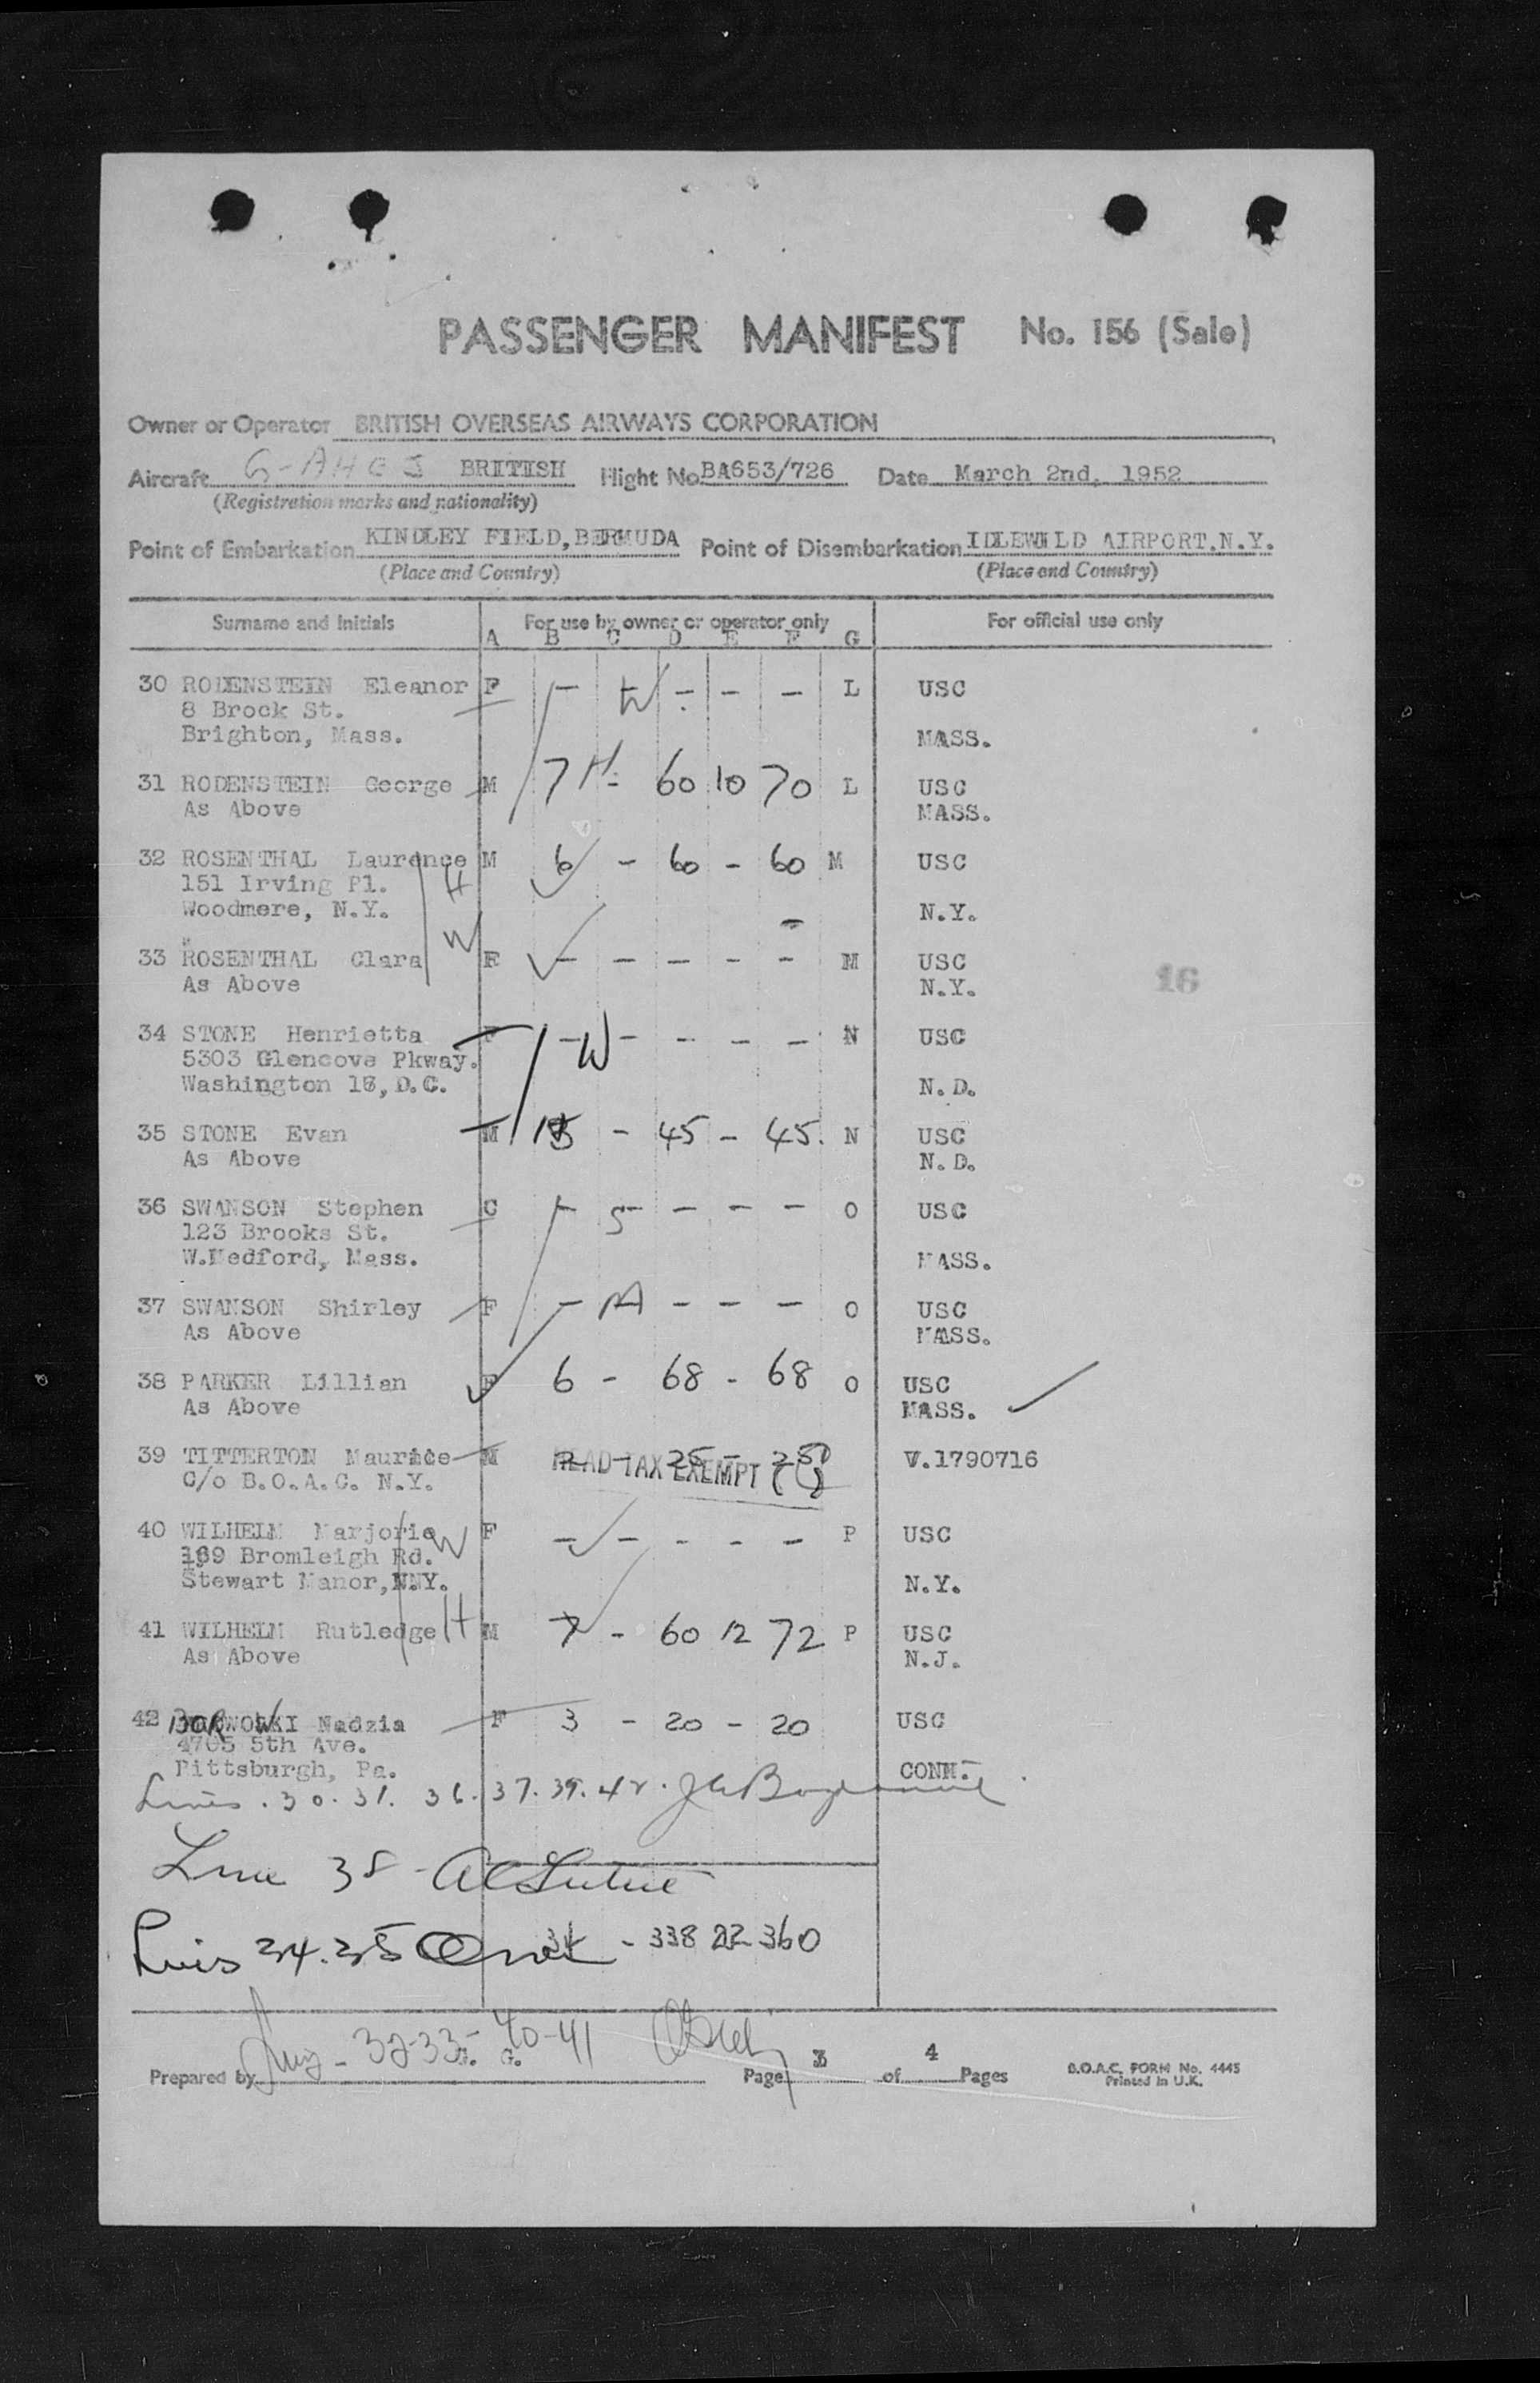 PASSENGER MANIFEST No. 156 (Sale)
Owner or Operator BRITISH OVERSEAS AIRWAYS CORPORATION
Aircraft G-AHGJ BRITISH Flight No. BA653/726 Date March 2nd, 1952
(Registration marks and nationality)
Point of Embarkation KINDLEY FIELD, BERMUDA Point of Disembarkation IDLEWILD AIRPORT.N.Y.
(Place and Country) (Place and Country)
Surname and Initials For use by owner or operator only For official use only
A B C D E F G
30 RODENSTEIN Eleanor F - W - - - L USC
8 Brock St.
Brighton, Mass. MASS.
31 RODENSTEIN George M 7 H - 60 10 70 L USC
As Above MASS.
32 ROSENTHAL Laurence M 6 - 60 - 60 M USC
151 Irving Pl. H
Woodmere, N.Y. N.Y.
W
33 ROSENTHAL Clara F - - - - - M USC
As Above N.Y.
16
34 STONE Henrietta F - W - - - - N USC
5303 Glencove Pkway.
Washington 16, D.C. N.D.
35 STONE Evan M - 45 - 45. N USC
As Above N.D.
36 SWANSON Stephen C - S - - - - O USC
123 Brooks St.
W.Medford, Mass. MASS.
37 SWANSON Shirley F - M - - - O USC
As Above MASS.
38 PARKER Lillian F 6 - 68 - 68 O USC
As Above MASS.
39 TITTERTON Maurice M 2 - 25 - 25 V.1790716
C/o B.O.A.C. N.Y. HEAD TAX EXEMPT
40 WILHELM Marjorie W F - - - - - P USC
169 Bromleigh Rd.
Stewart Manor, N.Y. N.Y.
41 WILHELM Rutledge H M 7 - 60 12 72 P USC
As Above N.J.
42 BORWOSKI Nadzia F 3 - 20 - 20 USC
4705 5th Ave.
Pittsburgh, Pa. CONN.
Lines. 30. 31. 36. 37. 39. 42.
Line 38
Lines 34.35 34 - 338 22 360
Lines - 32-33- 40-41
J. G.
Prepared by Page 3 of 4 Pages
B.O.A.C. FORM No. 4445
Printed in U.K.